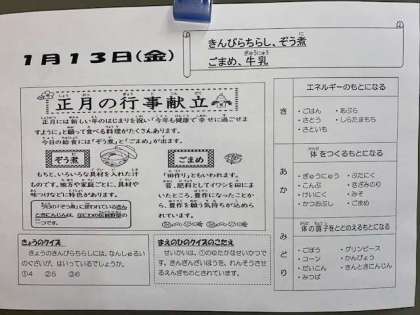 1月13日(金)
きんぴらちらし、ぞう煮
ごまめ、牛乳
正月の行事献立
正月には新しい年のはじまりを祝い「今年も健康で幸せに過ごせま
すように」と願って食べる料理がたくさんあります。
今日の給食には「ぞう煮」と「ごまめ」が出ます。
ぞう煮
もちと、いろいろな具材を入れた汁
ものです。地方や家庭ごとに、具材や
味つけなどに特色があります。
ごまめ
「田作り」ともいわれます。
昔、肥料としてイワシを田にま
いたところ、豊作になったことか
ら、豊作を願う気持ちが込めら
れています。
きょうのクイズ
きょうのきんぴらちらしには、なんしゅるい
のぐざいが、はいっているでしょうか。
①4 ②5 ③6
まえのひのクイズのこたえ
せいかいは、①のゆたかなせいかつです。
きんぎんざいほうを、れんそうさせ
るえんぎものとされています。
エネルギーのもとになる
き
・ごはん ・あぶら
・さとう ・しらたまもち
・さといも
体をつくるもとになる
あか
・ぎゅうにゅう ・ぶたにく
・こんぶ ・きざみのり
・けいにく ・みそ
・かつおぶし ・ごまめ
体の調子をととのえるもとになる
みどり
・ごぼう ・グリンピース
・コーン ・かんぴょう
・だいこん ・きんときにんじん
・みつば